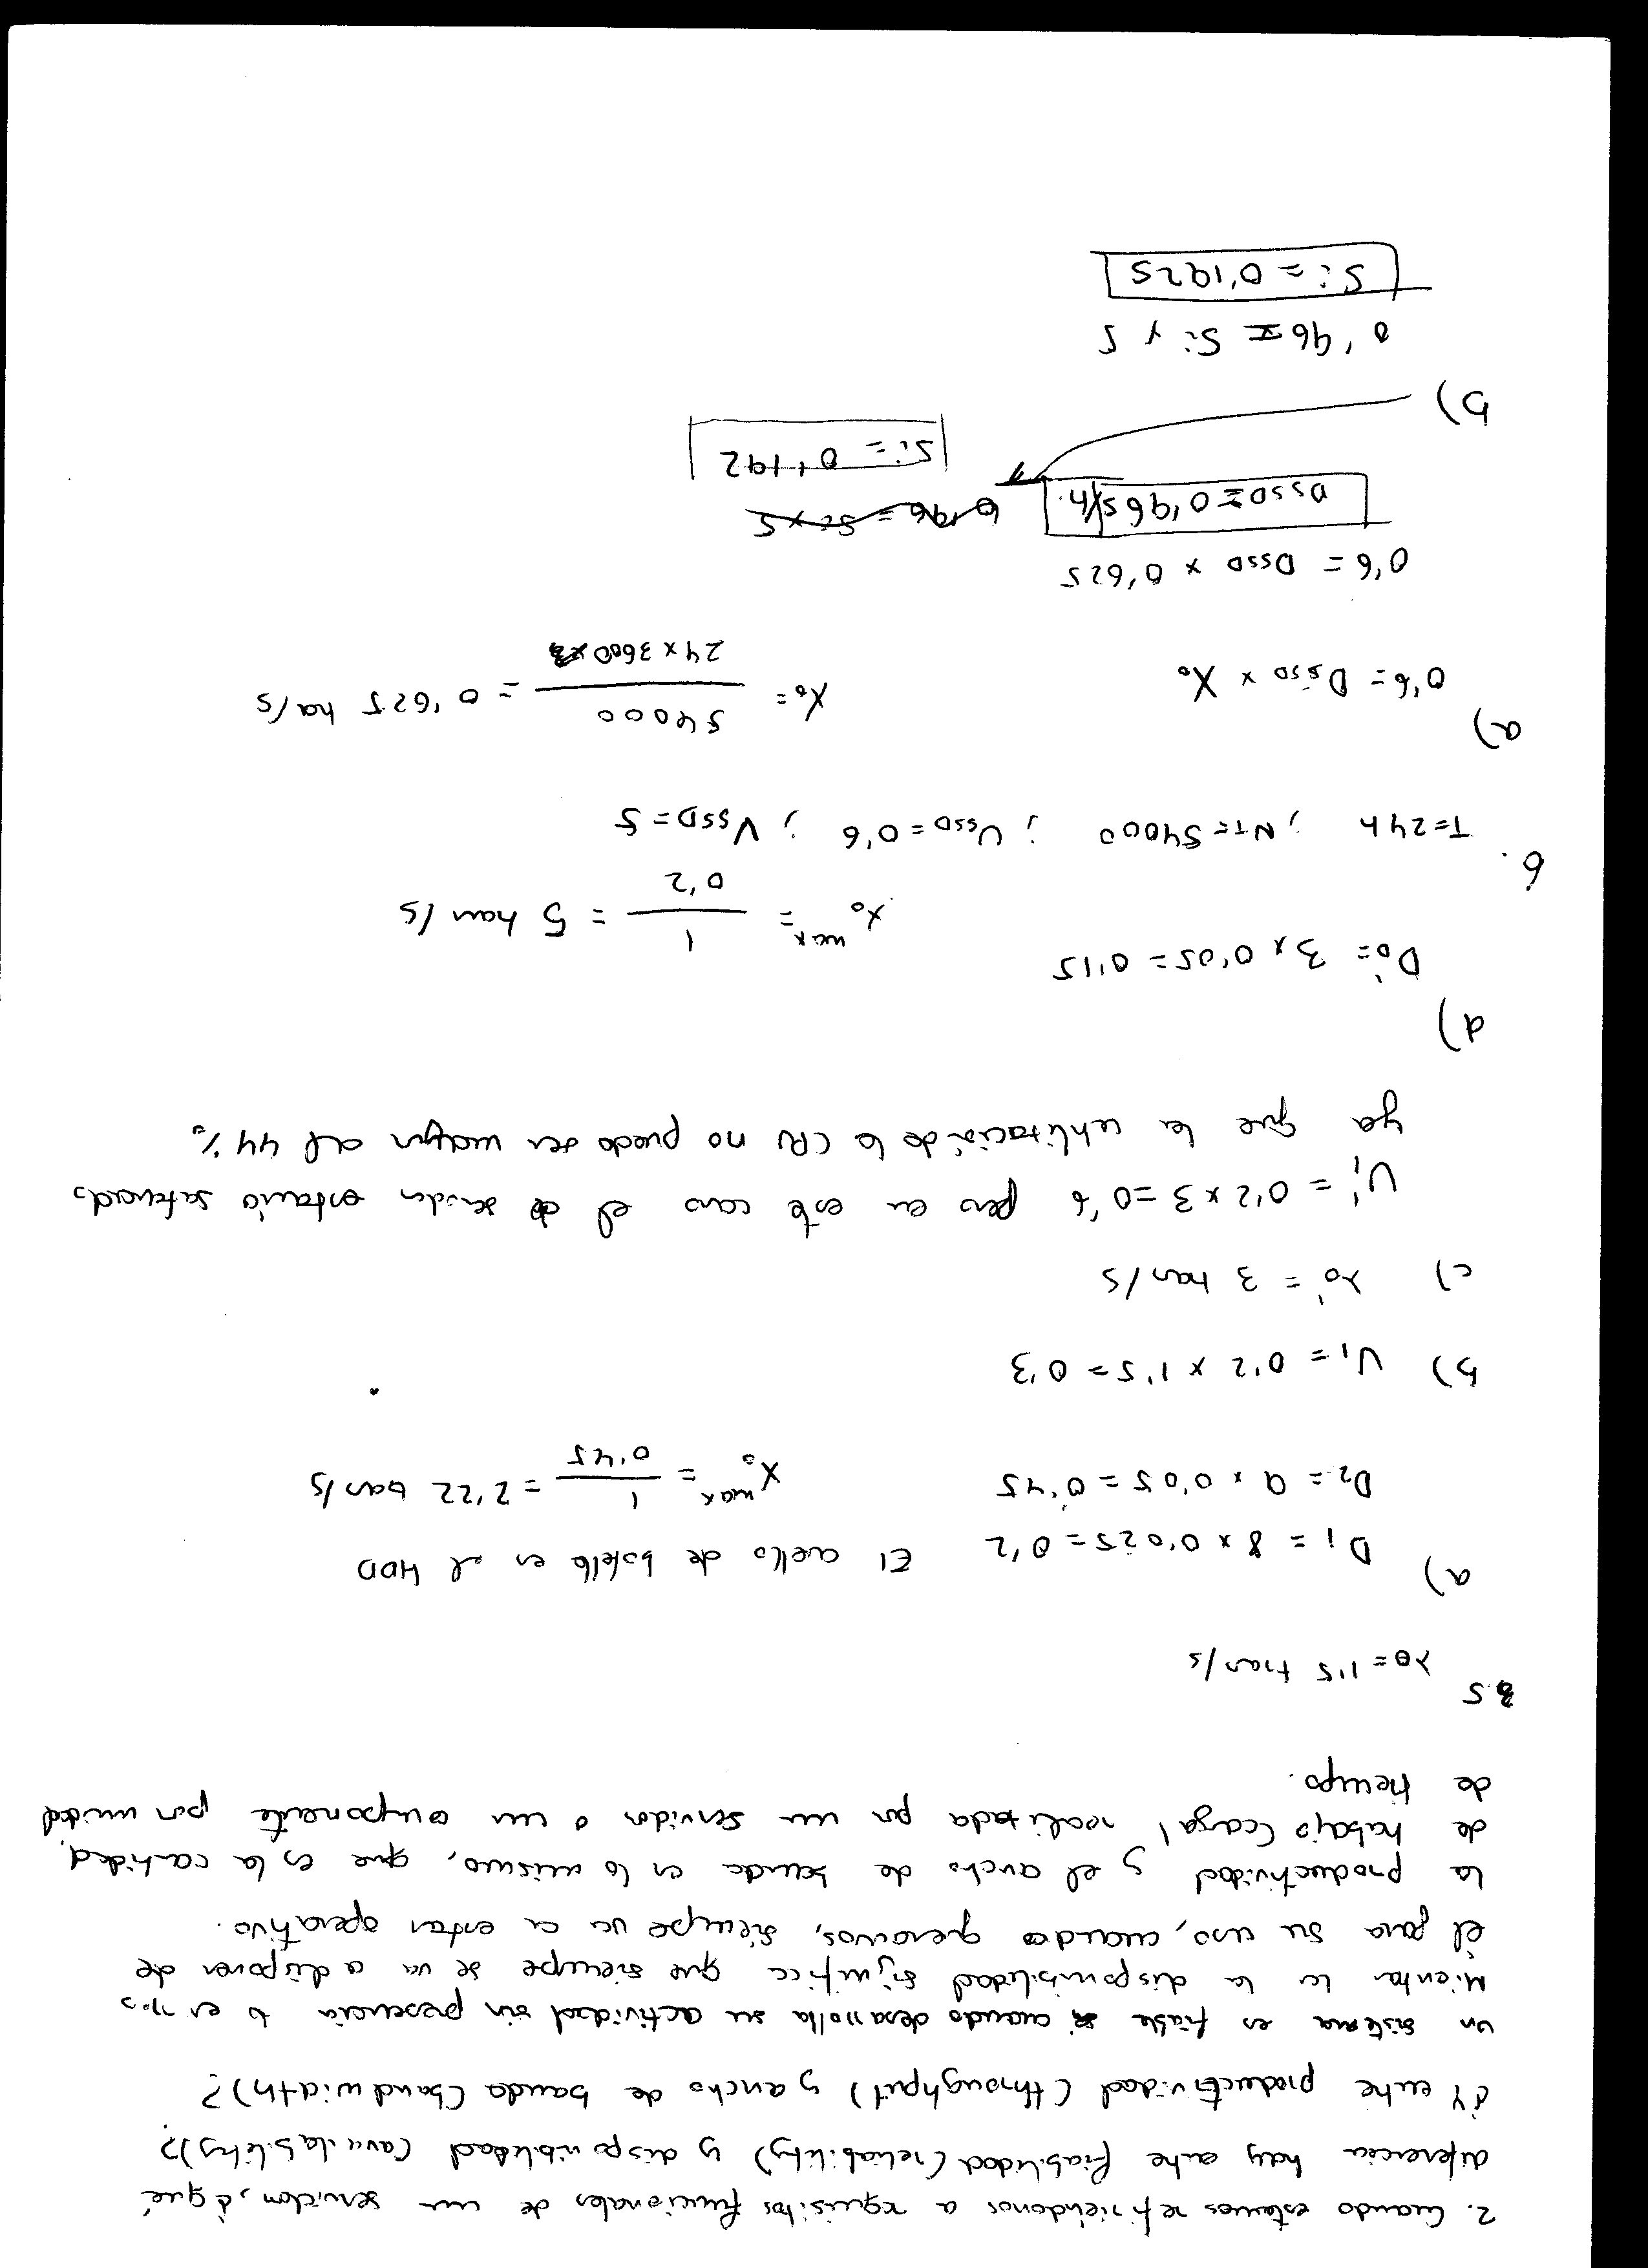 2. Cuando estamos refiriéndonos a requisitos funcionales de un servidor, ¿qué
diferencia hay entre fiabilidad (reliability) y disponibilidad (availability)?
¿Y entre productividad (throughput) y ancho de banda (bandwidth)?
un sistema es fiable cuando desarrolla su actividad sin presencia
Mientras la disponibilidad significa que siempre se va a disponer de
él para su uso, cuando queramos, siempre va a estar operativo.
La productividad y el ancho de banda es lo mismo, que es la cantidad
de trabajo (carga) realizada por un servidor o un componente por unidad
de tiempo.
5
λ0 = 1'5 tran/s
a)
D1 = 8 x 0'025 = 0'2 El cuello de botella es el HDD
D2 = 9 x 0'05 = 0'45 X0 max = 1 / 0'45 = 2'22 tran/s
b) U1 = 0'2 x 1'5 = 0'3
c) λ0' = 3 tran/s
U1' = 0'2 x 3 = 0'6 pero en este caso el servidor estario saturado
ya que la utilización de la CPU no puede ser mayor al 44%
d)
D0' = 3 x 0'05 = 0'15
X0 max = 1 / 0'2 = 5 tran/s
6.
T = 24h ; NT = 54000 ; USSD = 0'6 ; VSSD = 5
a)
0'6 = DSSD x X0 X0 = 54000 / 24 x 3600 = 0'625 tra/s
0'6 = DSSD x 0'625
DSSD = 0'96 s/h. 0'96 = Si x 5
Si = 0'192
b)
0'96 = Si x 5
Si = 0'192s